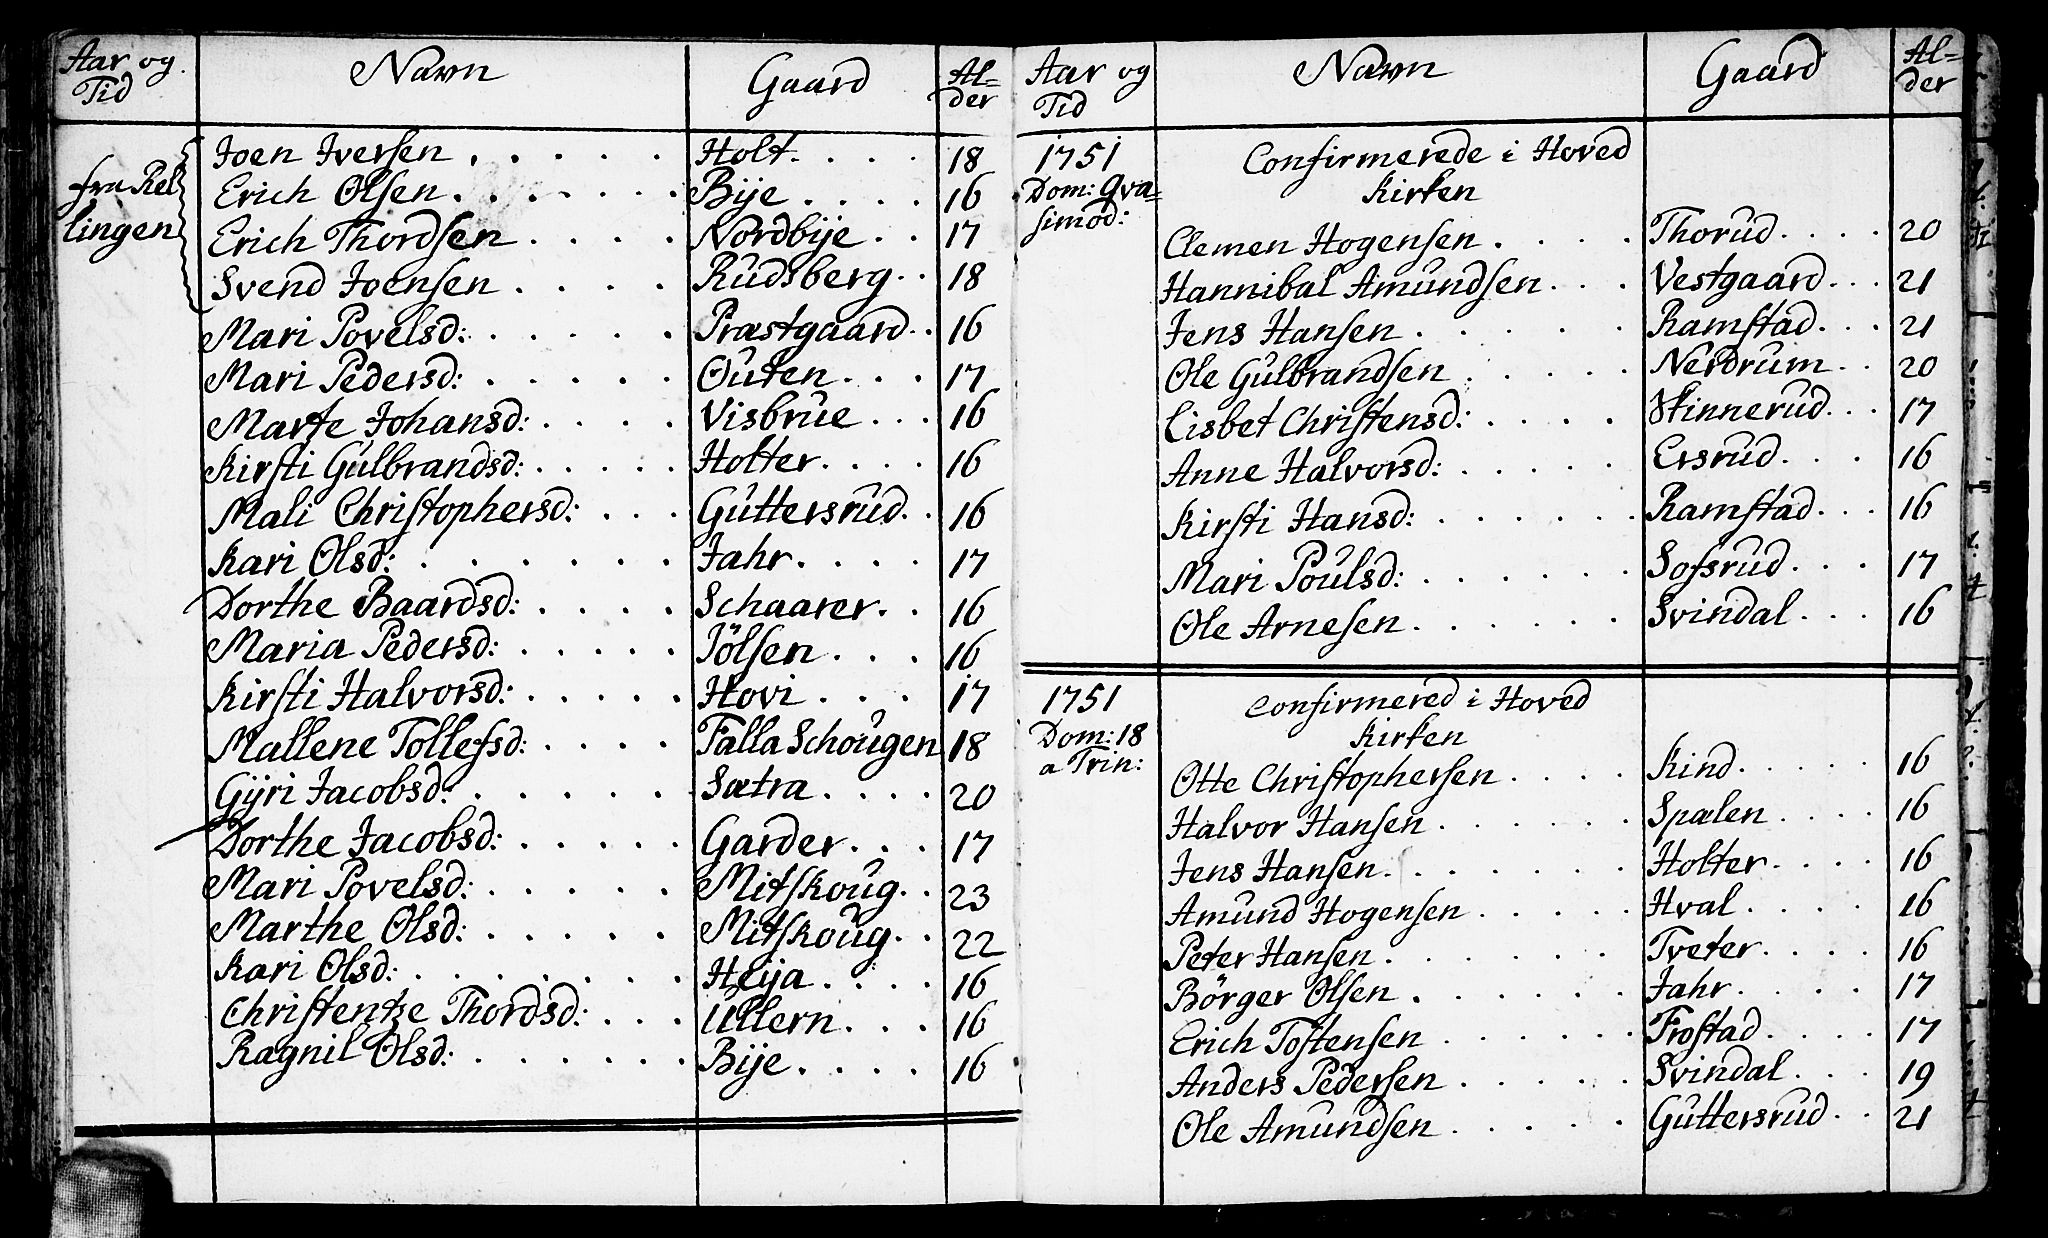 Aar og Tid | Navn | Gaard | Al-der
fra Rel
lingen
Joen Iversen . . . . . Holt . . . 18
Erich Olsen . . . . . . Bije . . . . 16
Erich Thordsen . . . . Nordbije . . 17
Svend Joensen . . . . Rudsberg . . 18
Mari Povelsd: . . . . . Præstgaard . . 16
Mari Pedersd: . . . . . Outen . . . 17
Marte Johansd: . . . . Visbrue . . . 16
Kirsti Gulbrandsd: . . . . . Holter . . . . 16
Mali Christophersd: . . . Guttersrud . . 16
Kari Olsd: . . . . . . Jahr . . . . 17
Dorthe Baardsd: . . . . Schaarer . . 16
Maria Pedersd: . . . . . Jölsen . . . 16
Kirsti Halvorsd: . . . . . Hovi . . . 17
Mallene Tollefsd: . . . . Falla Schougen 18
Gÿri Jacobsd: . . . . . Sætra . . . . 20
Dorthe Jacobsd: . . . . . Garder . . . 17
Mari Povelsd: . . . . . Mitskoug . . 23
Marthe Olsd: . . . . . Mitskoug . . 22
Kari Olsd: . . . . . . . Heija . . . . 16
Christentze Thordsd: . . . Ullern . . . 16
Ragnil Olsd: . . . . . . Bije . . . . 16
Aar og Tid | Navn | Gaard | Al-der
1751
Dom: Qva-
simod:
Confirmerede i Hoved
Kirken
Clemen Hogensen . . . . Thorud . . . . 20
Hannibal Amundsen . . . Vestgaard . . . 21
Jens Hansen . . . . . Ramstad . . . 21
Ole Gulbrandsen . . . . . Nerdrum . . 20
Lisbet Christensd: . . . . Skinnerud . . . 17
Anne Halvorsd: . . . . . Ersrud . . . 16
Kirsti Hansd: . . . . . . Ramstad . . . 16
Mari Poulsd: . . . . . . Sofsrud . . . 17
Ole Arnesen . . . . . . Svindal . . . 16
1751
Dom: 18
a Trin:
Confirmered i Hoved
Kirken
Otte Christophersen . . . . Kind . . . . . 16
Halvor Hansen . . . . . . Spælen . . . . 16
Jens Hansen . . . . . . . Holter . . . . 16
Amund Hogensen . . . . . Hval . . . . 16
Peter Hansen . . . . . . Tveter . . . . 16
Börger Olsen . . . . . . Jahr . . . . 17
Erich Tostensen . . . . . Frostad . . . . 17
Anders Pedersen . . . . . Svindal . . . 19
Ole Amundsen . . . . . Guttersrud . . 21